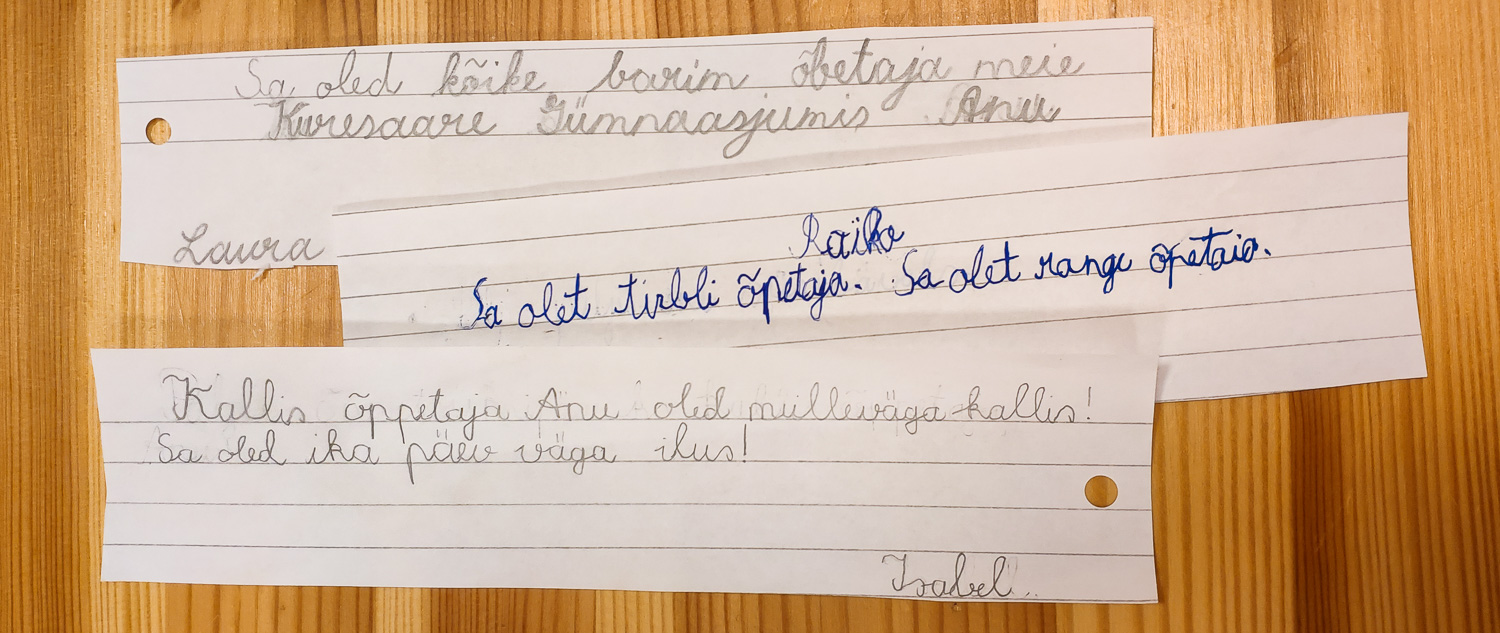 Sa oled kõike barim õbetaja meie
Kuresaare Gümnaasjumis Anu
Laura
Raiko
Sa olet tirbli õpetaja. Sa olet range õpetaja.
Kallis õppetaja Anu oled mulleväga kallis!
Sa oled ika päev väga ilus!
Isabel